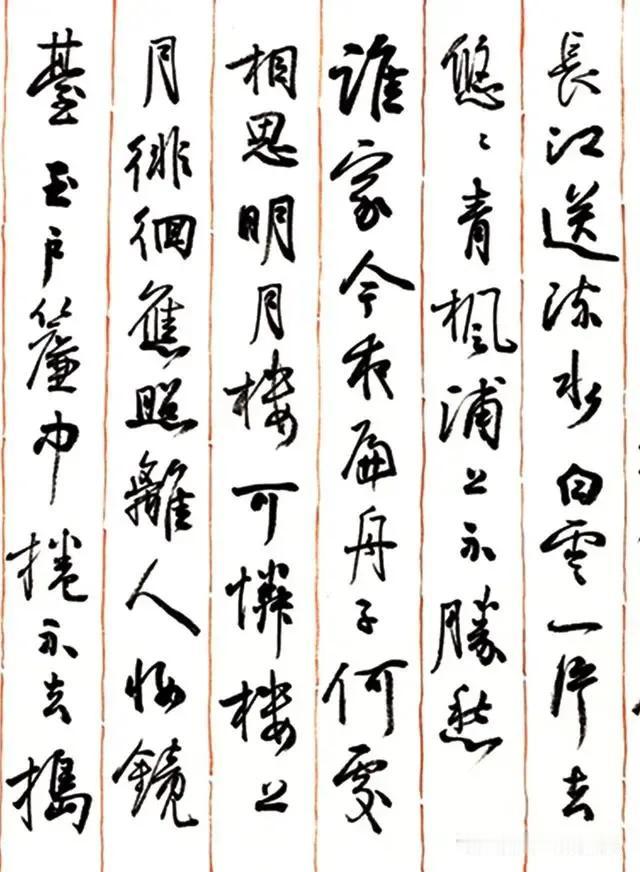 長江送流水白雲一片去
悠〻青楓浦上不勝愁
誰家今夜扁舟子何處
相思明月樓可憐樓上
月徘徊應照離人妝鏡
臺玉戶簾中捲不去搗